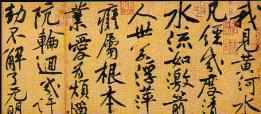 我見黃河水
凡經幾度清
水流如激箭
人世若浮萍
癡屬根本
業愛為煩惱
阬輪迴幾許
劫不解了無明